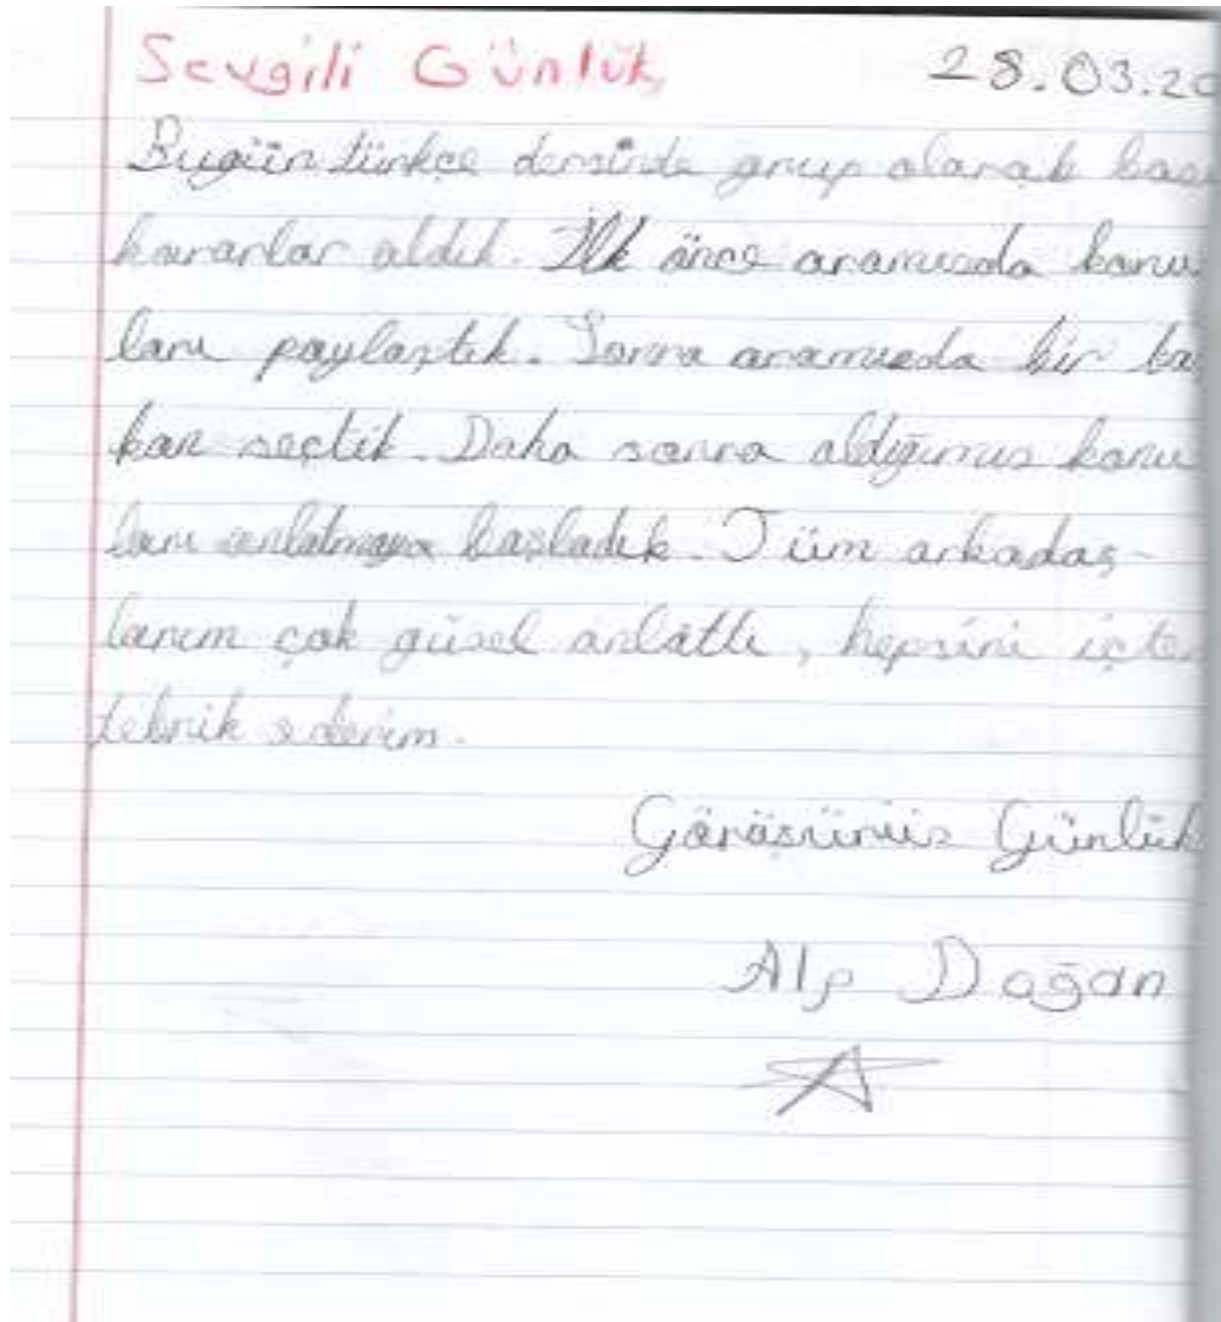 Sevgili Günlük, 28.03.20
Bugün türkçe dersinde grup olarak bazı
kararlar aldık. İlk önce aramızda konu
ları paylaştık. Sonra aramızda bir ba
kan seçtik. Daha sonra aldığımız konu
ları anlatmaya başladık. Tüm arkadaş-
larım çok güzel anlattı, hepsini içten
tebrik ederim.
Görüşürüz Günlük
Alp Doğan